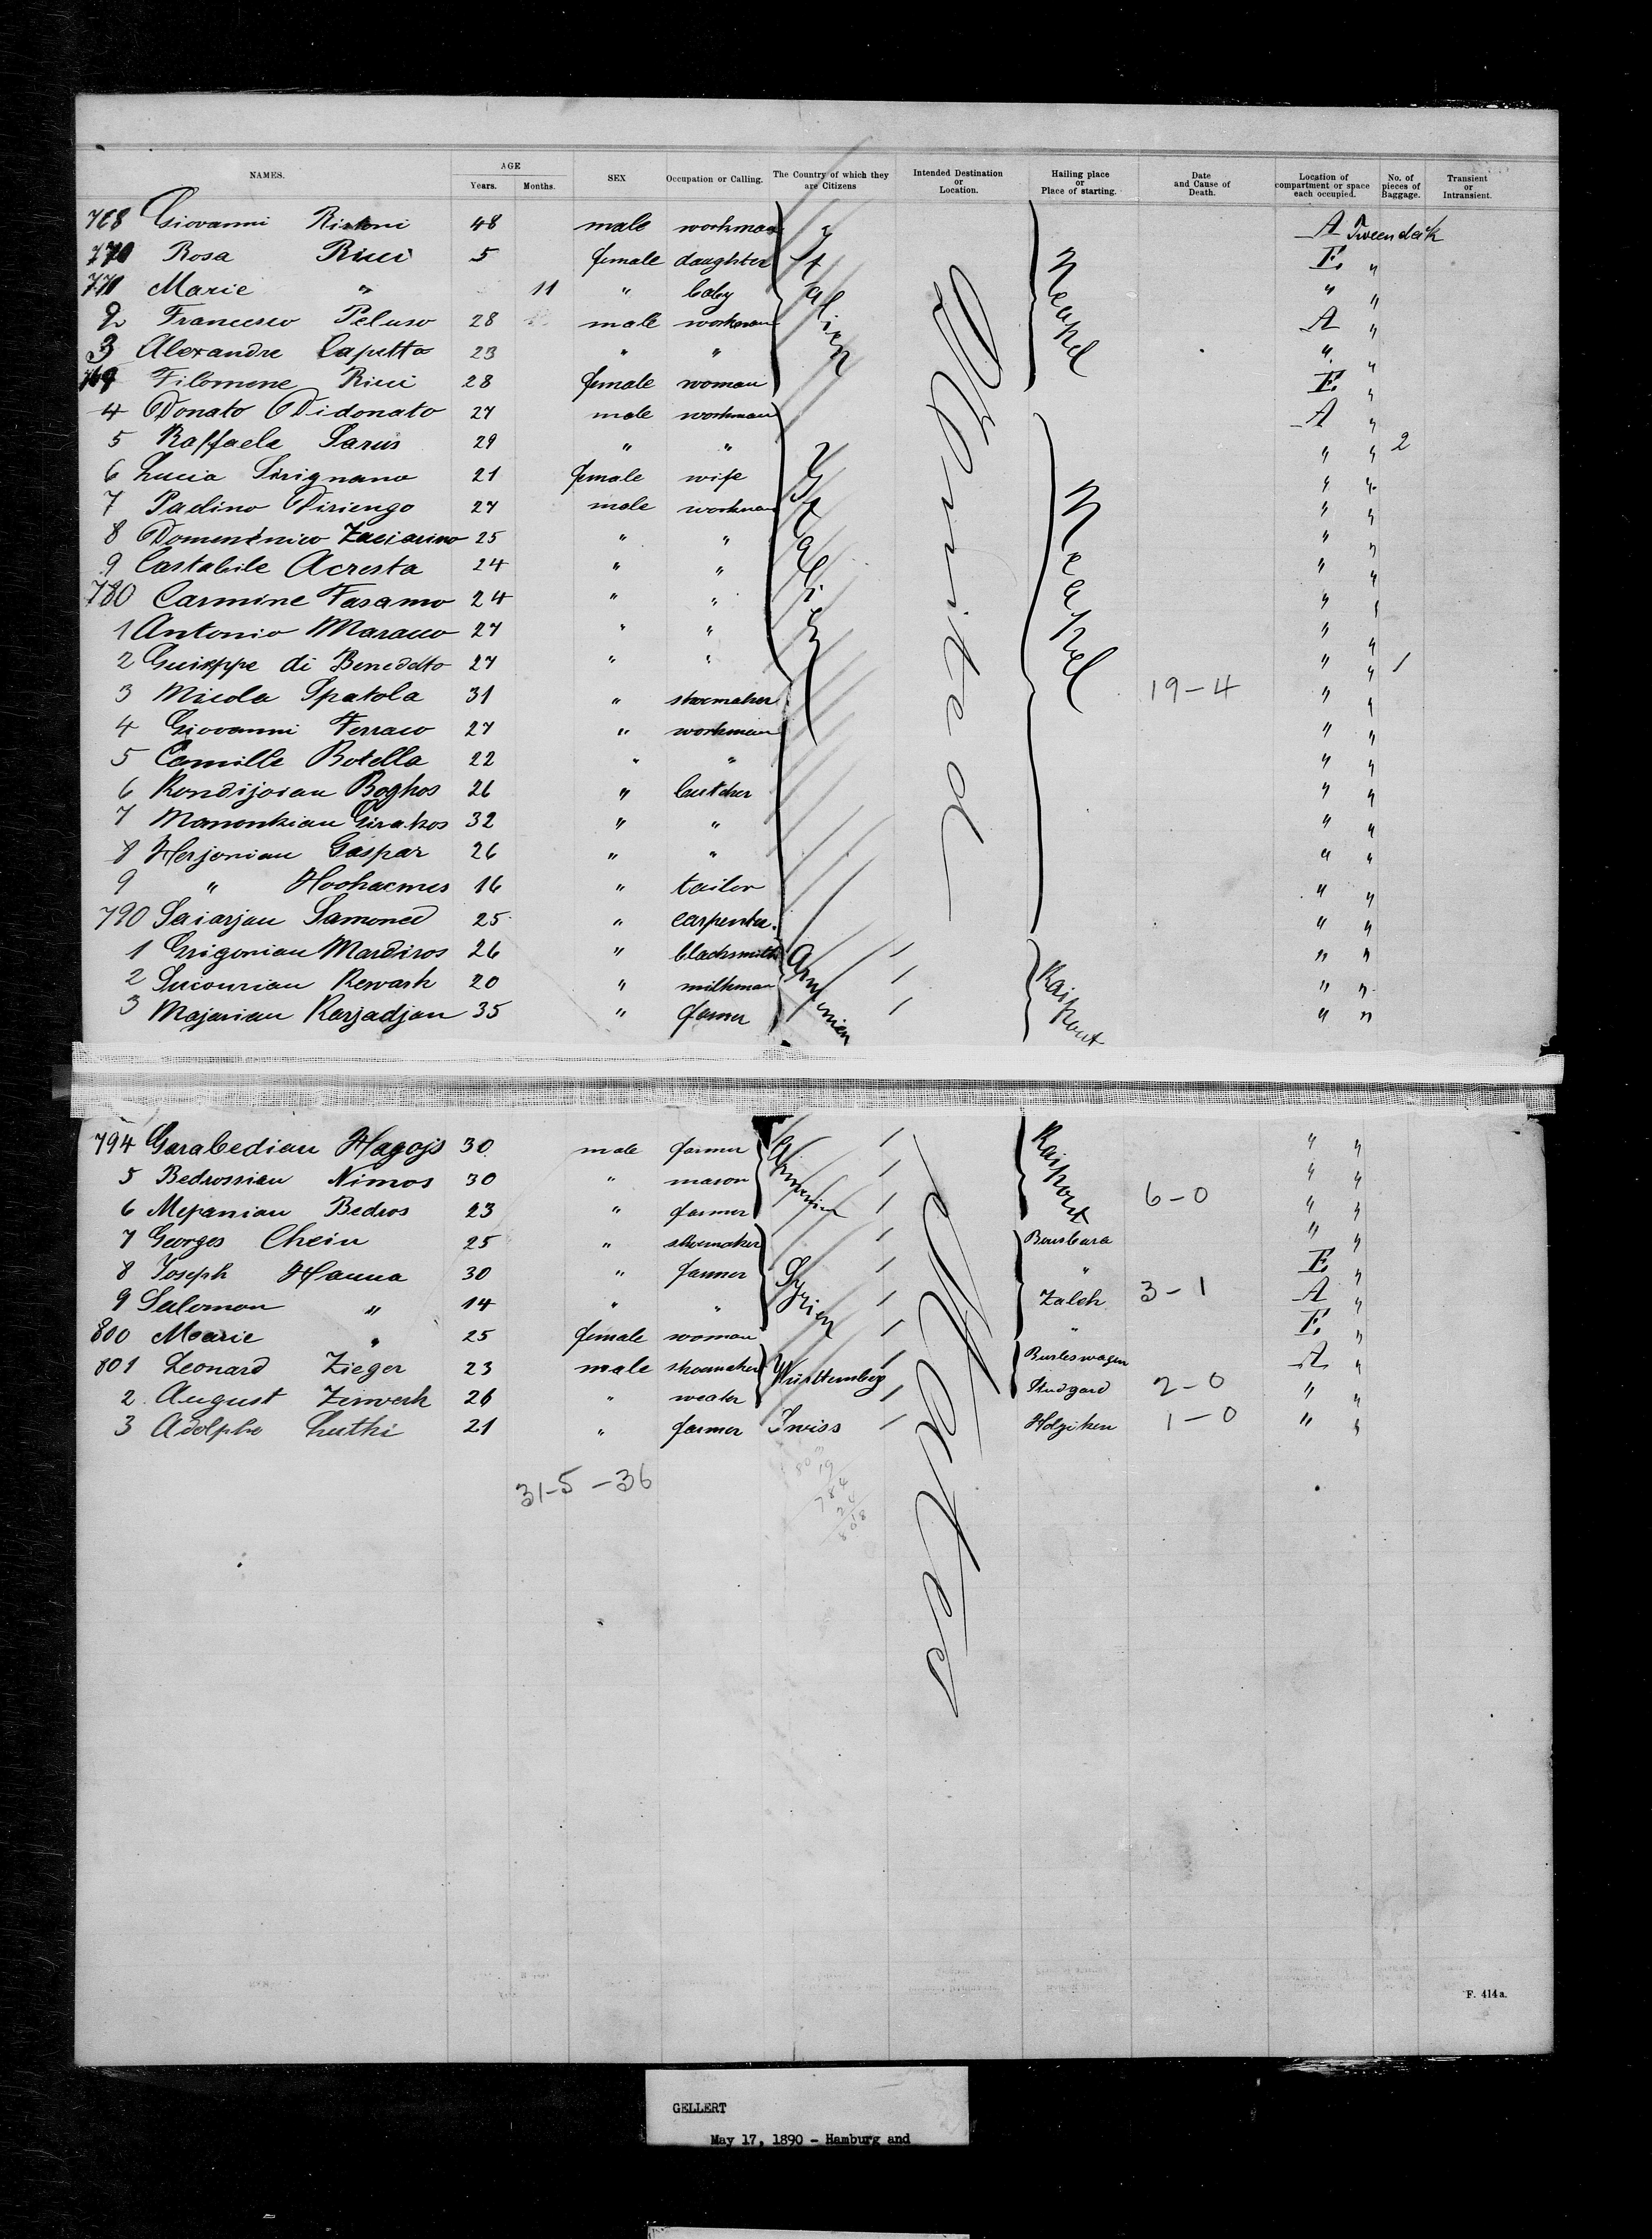 NAMES. AGE SEX Occupation or Calling. The Country of which they are Citizens Intended Destination or Location. Hailing place or Place of starting. Date and Cause of Death. Location of compartment or space each occupied. No. of pieces of Baggage. Transient or Intransient.
Years. Months.
768 Giovanni 48 male workman A Tweendeck
770 Rosa Ricci 5 female daughter E "
771 Marie " 11 " baby " "
2 Francesco Peluso 28 male workman A "
3 Alexandre Caputto 23 " " " "
769 Filomene Ricci 28 female woman E "
Italien
Neapel
4 Donato Didonato 27 male workman A "
5 Raffaele Sarus 29 " " " " 2
6 Lucia Sirignano 21 female wife " "
7 Paolino Diriengo 27 male workman " "
8 Domenenico Zaciarino 25 " " " "
9 Castabile Acresta 24 " " " "
780 Carmine Fasamo 24 " " " "
1 Antonio Maracco 27 " " " "
2 Guiseppe di Benedetto 27 " " " " 1
3 Nicola Spatola 31 " shoemaker 19-4 " "
4 Giovanni Ferraco 27 " workman " "
5 Camille Botella 22 " " " "
6 Kondijoian Boghos 26 " butcher " "
7 Manonkian Girakos 32 " " " "
8 Herjonian Gaspar 26 " " " "
9 " Hoohacmes 16 " tailor " "
790 Saiarjan Samoned 25 " carpenter " "
Italien
United States
Neapel
1 Grigonian Mardiros 26 " blacksmith " "
2 Sucourian Kework 20 " milkman " "
3 Majarian Karjadjan 35 " farmer " "
Armenien
Kaipout
794 Garabedian Hagojs 30 male farmer " "
5 Bedrossian Nimos 30 " mason " "
6 Mepanian Bedros 23 " farmer 6-0 " "
Armenien
Kaipout
7 Georges Chein 25 " shoemaker Bousbara " "
8 Joseph Hanna 30 " farmer " E "
9 Salomon " 14 " " Zaleh 3-1 A "
800 Marie " 25 female woman " E "
Syrien
801 Leonard Zieger 23 male shoemaker Württemberg Burleswagen A "
2 August Zinverh 26 " Studgard 2-0 " "
3 Adolphe Luthi 21 " farmer Swiss Holziken 1-0 " "
31-5-36
803
19
784
24
808
F. 414a.
GELLERT
May 17, 1890 - Hamburg and